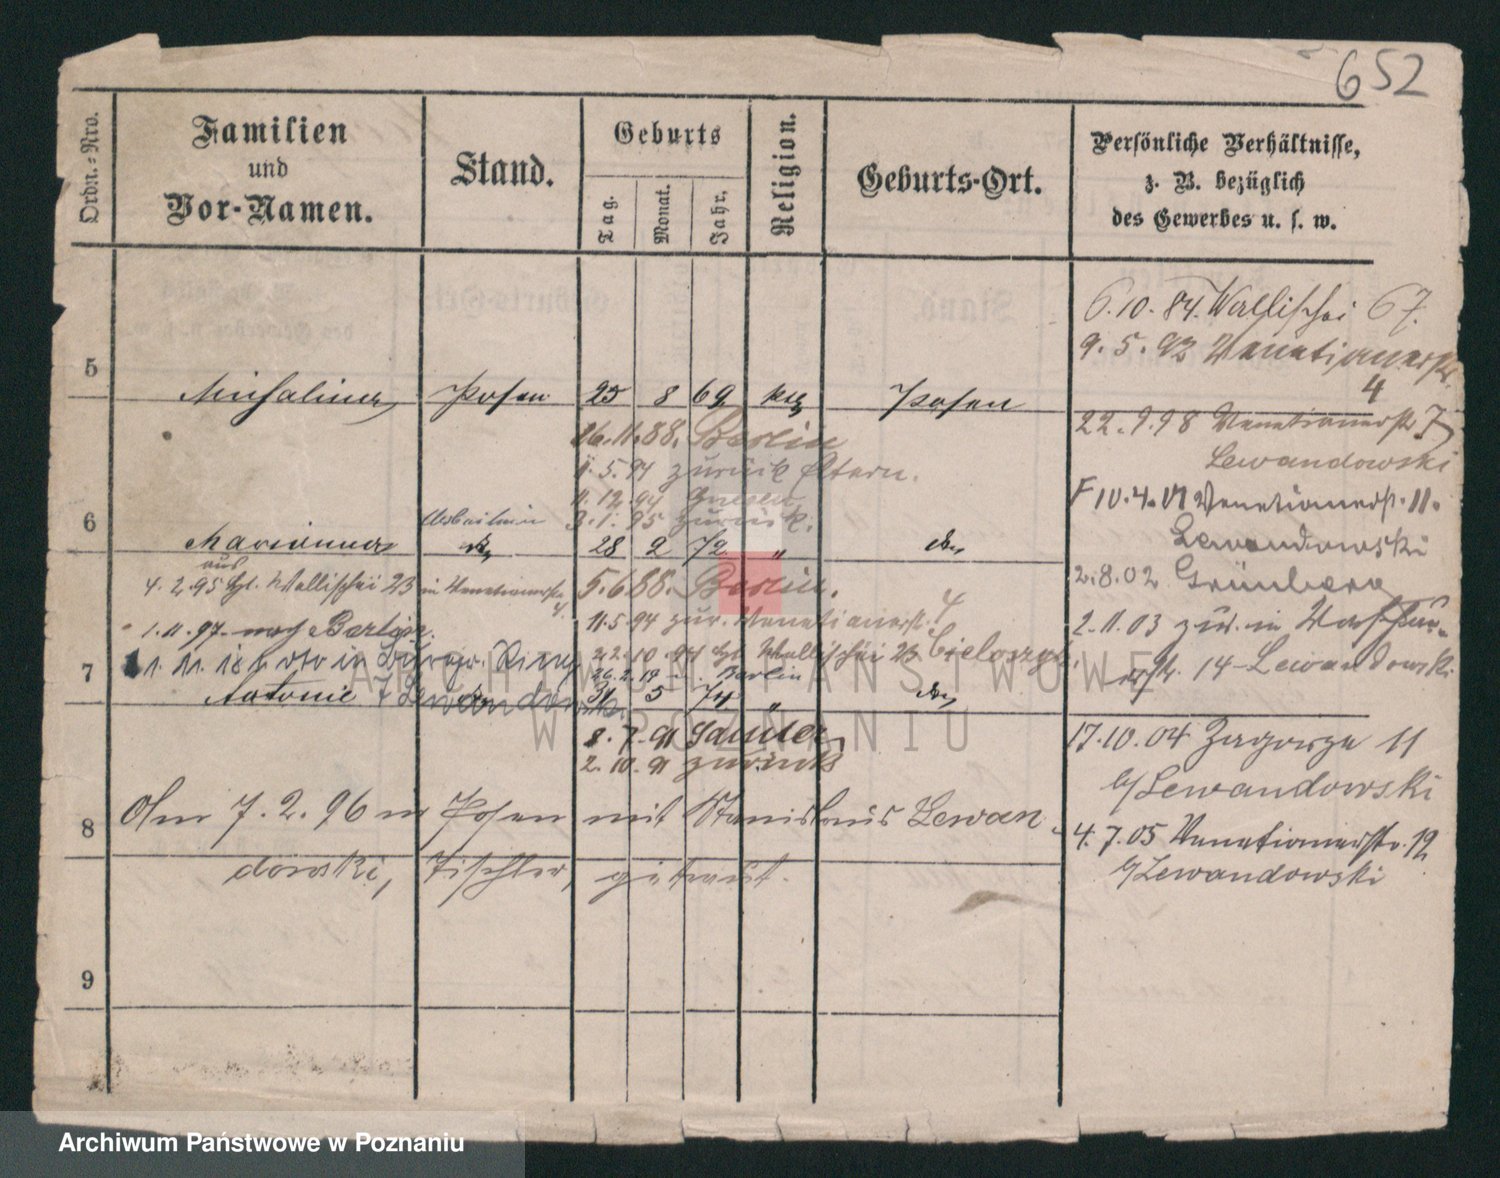 652
Ordn.-Nro.
Familien
und
Vor-Namen.
Stand.
Geburts
Tag.
Monat.
Jahr.
Religion.
Geburts-Ort.
Persönliche Verhältnisse,
z. B. bezüglich
des Gewerbes u. s. w.
6.10.84. Wallischei 67.
9.5.92 Venetianerstr.
4
5
Michalina Posen 25 8 69 Posen
16.11.88. Berlin
5.94 zurück Eltern.
11.12.94 Gnesen
3.1.95 zurück.
22.9.98 Venetianerstr 7
Lewandowski
F 10.4.01 Venetianerstr. 11.
Lewandowski
6
Arbeiterin
Marianna 28 2 72 "
aus
4.2.95 Wallischei 23 in Venetianerstr
4.
5.6.88. Berlin.
11.5.94 zur. Venetianerstr. 4
2.8.02 Grünberg
1.11.97. nach Berlin.
22.10.94 Wallischei 23
Berlin
2.11.03 zur. in
14 Lewandowski
7
Antonie Lewandowski 31 5 74 "
8.7.91 Samter
2.10.91 zurück
17.10.04 Zagorze 11
b/ Lewandowski
8
Am 7.2.96 in Posen mit Stanislaus Lewan-
dowski, Tischler, getraut.
4.7.05 Venetianerstr. 12
b/ Lewandowski
9
ARCHIWUM PAŃSTWOWE
W POZNANIU
Archiwum Państwowe w Poznaniu